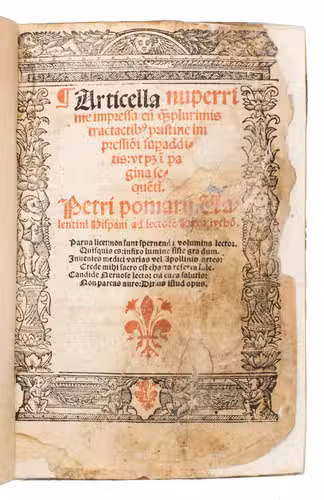 ¶ Articella nuperri
me impressa cū q̄plurimis
tractatibꝰ pristine im
pressiōi supaddi
tis: vt pꝫ ī pa
gina se
quēti.
Petri pomarii Va
lentini Hispani ad lectorē
Parua licet: non sunt spernenda volumina lector.
Quisquis es: infixo lumine siste gra dum.
Inuenies medici varias vel Apollinis artes:
Crede mihi sacro est
Candide lector
Non parcas auro: Diuus istud opus.